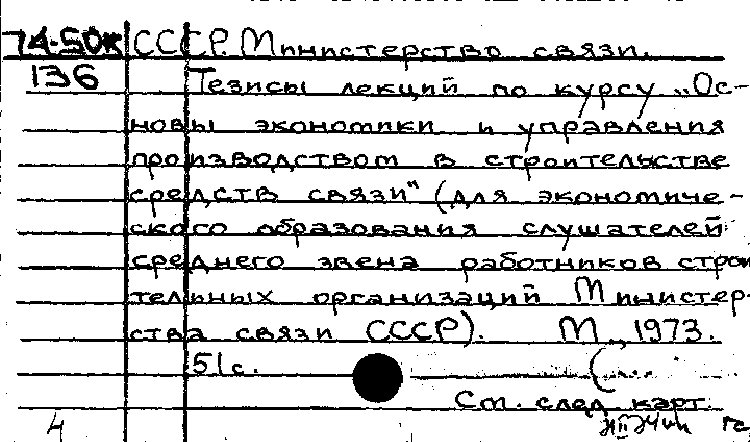 74-50к СССР. Министерство связи.
136 Тезисы лекций по курсу „Ос-
новы экономики и управления
производством в строительстве
средств связи" (для экономиче-
ского образования слушателей
среднего звена работников строи
тельных организаций Министер-
ства связи СССР). М., 1973.
51 с.
См. след карт.
4